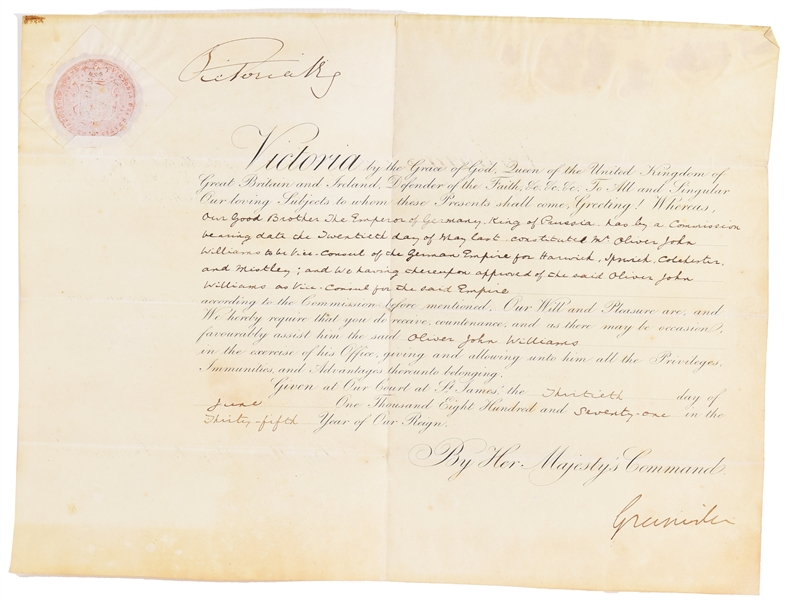 Victoria R
Victoria by the Grace of God, Queen of the United Kingdom of
Great Britain and Ireland, Defender of the Faith, &c, &c, &c, To All and Singular
Our loving Subjects to whom these Presents shall come, Greeting! Whereas,
Our Good Brother The Emperor of Germany, King of Prussia, has by a Commission
bearing date the Twentieth day of May last, constituted Mr Oliver John
Williams to be Vice-Consul of the German Empire for Harwich, Ipswich, Colchester,
and Mistley; and We having thereupon approved of the said Oliver John
Williams as Vice-Consul for the said Empire
according to the Commission before mentioned, Our Will and Pleasure are, and
We hereby require that you do receive, countenance, and as there may be occasion,
favourably assist him the said Oliver John Williams
in the exercise of his Office, giving and allowing unto him all the Privileges,
Immunities, and Advantages thereunto belonging.
Given at Our Court at St James', the Thirtieth day of
June One Thousand Eight Hundred and Seventy-one in the
Thirty-fifth Year of Our Reign.
By Her Majesty's Command.
Granville